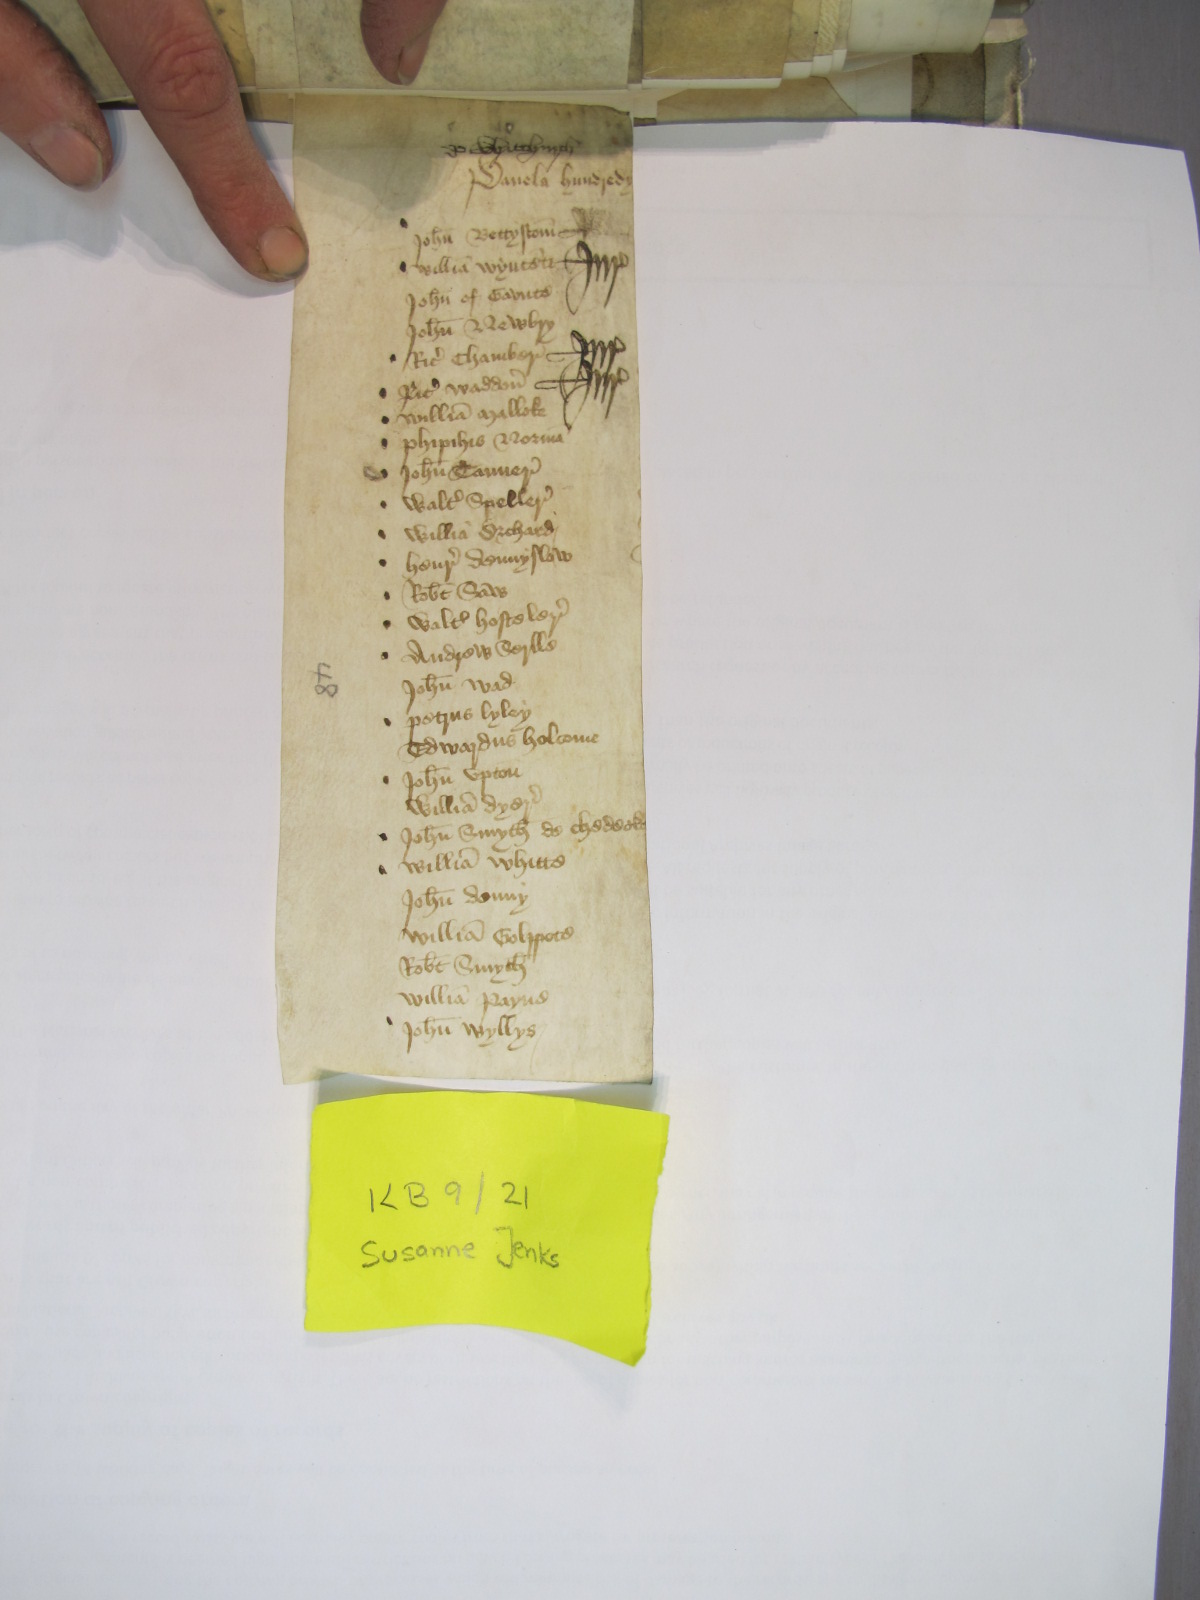 Panela hundredi
John Bettyston
Willia Wynter
Jur
John of Gaunte
John Newbry
Ric Chamber
Jur
Ric Waddon
Jur
Willia Malloke
Phipihis Norma
John Tanner
Walt Speller
Willia Orchard
Henr Dennyslow
Robt Saws
Walt Hosteler
Andrew Serlle
John Wad
Petrus Lyley
68
Edwardus Holcome
John Upton
Willia Dyer
John Smyth de
Willia Whitte
John Denny
Willia
Robt Smyth
Willia Payne
John Wyllys
KB 9/21
Susanne Jenks